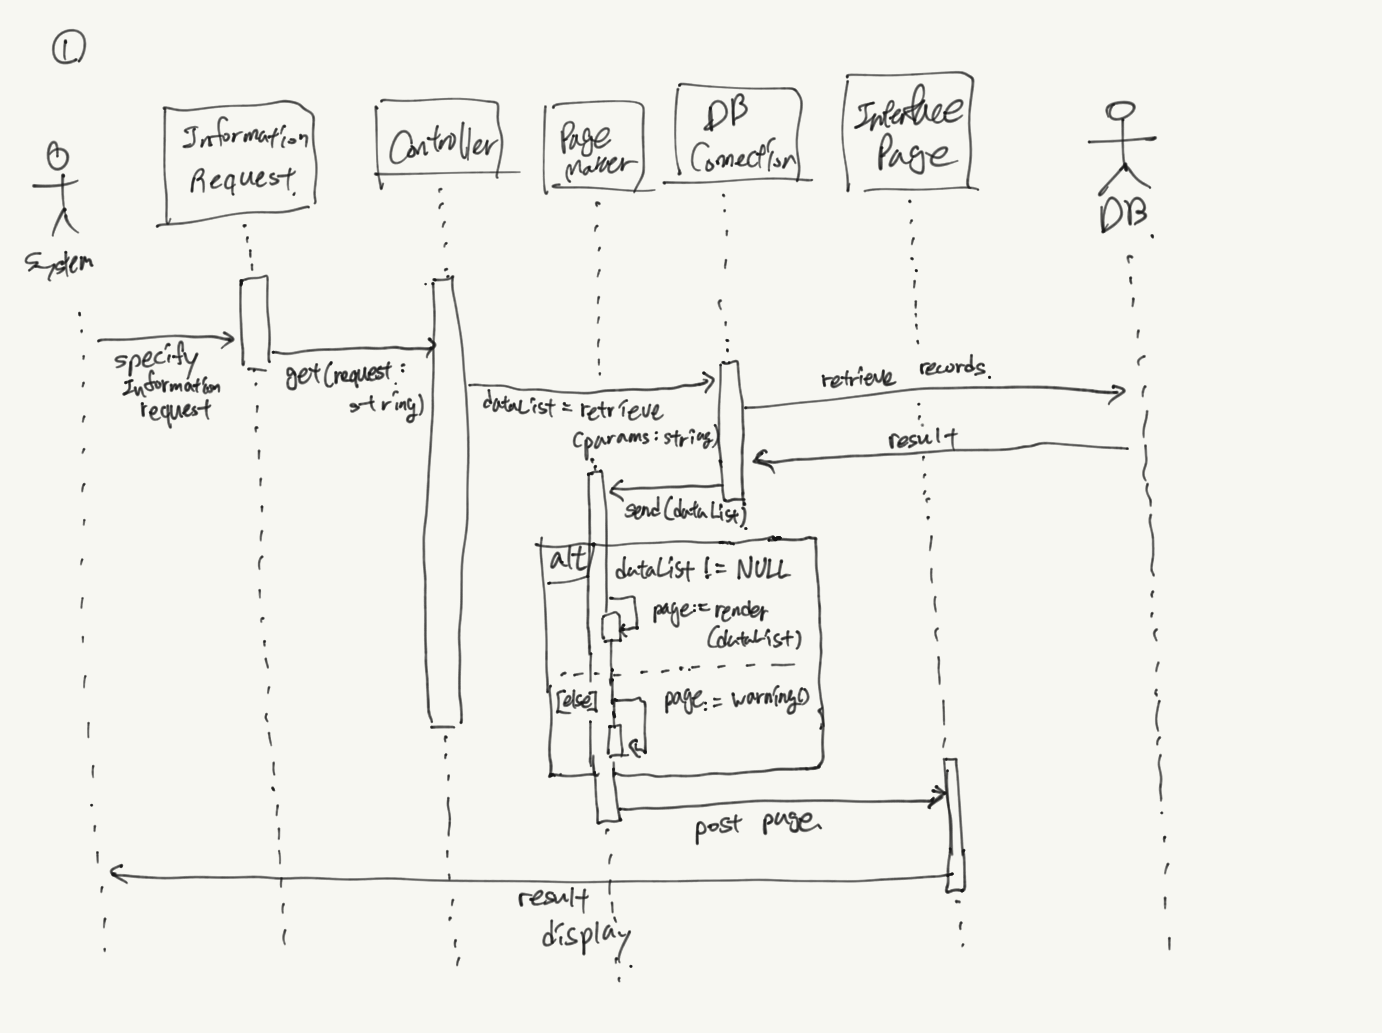 1
Information
Request.
Controller
Page
Maker
DB
Connection
Interface
Page
System
DB.
specify
Information
request
get(request:
string)
dataList = retrieve
(params: string)
retrieve records.
result
send(dataList)
alt
dataList != NULL
page:= render
(dataList)
[else]
page:= warning()
post page.
result
display.